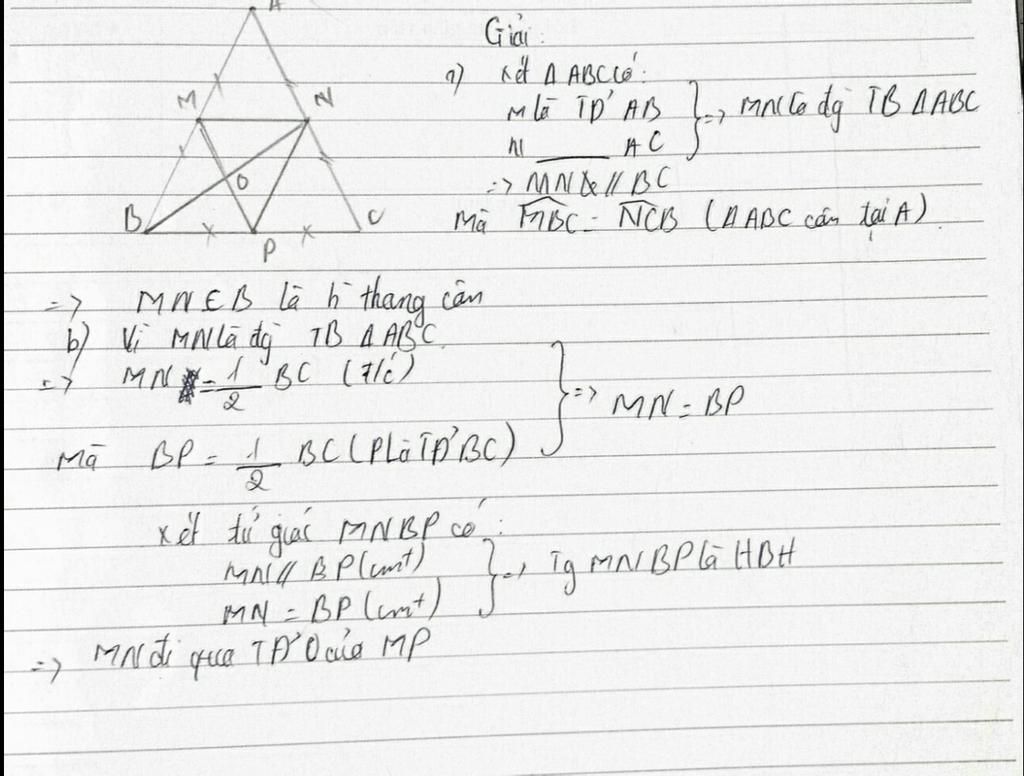 A
M
N
O
B
P
C
Giải:
a) Xét Δ ABC có:
M là TĐ' AB
N ____ AC } => MN là đg TB Δ ABC
=> MN // BC
Mà MBC = NCB (Δ ABC cân tại A).
=> MNCB là h thang cân
b) Vì MN là đg TB Δ ABC.
=> MN = 1/2 BC (t/c)
Mà BP = 1/2 BC (P là TĐ' BC) } => MN = BP
Xét tứ giác MNBP có:
MN // BP (cmt)
MN = BP (cmt) } => Tg MNBP là HBH
=> MN đi qua TĐ' O của MP